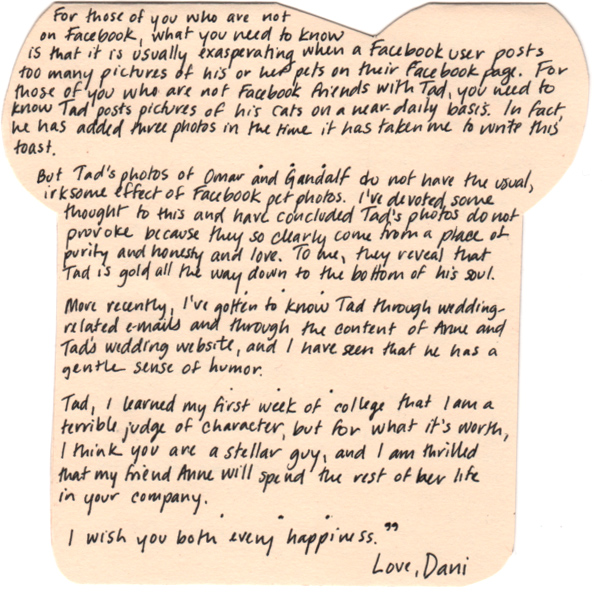 For those of you who are not
on Facebook, what you need to know
is that it is usually exasperating when a Facebook user posts
too many pictures of his or her pets on their Facebook page. For
those of you who are not Facebook friends with Tad, you need to
know Tad posts pictures of his cats on a near-daily basis. In fact,
he has added three photos in the time it has taken me to write this
toast.
But Tad's photos of Omar and Gandalf do not have the usual,
irksome effect of Facebook pet photos. I've devoted some
thought to this and have concluded Tad's photos do not
provoke because they so clearly come from a place of
purity and honesty and love. To me, they reveal that
Tad is gold all the way down to the bottom of his soul.
More recently, I've gotten to know Tad through wedding-
related e-mails and through the content of Anne and
Tad's wedding website, and I have seen that he has a
gentle sense of humor.
Tad, I learned my first week of college that I am a
terrible judge of character, but for what it's worth,
I think you are a stellar guy, and I am thrilled
that my friend Anne will spend the rest of her life
in your company.
I wish you both every happiness."
Love, Dani